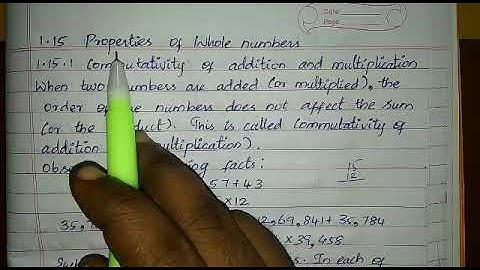 Date
Page
1.15 Properties of Whole numbers
1.15.1 Commutativity of addition and multiplication
When two numbers are added (or multiplied), the
order of the numbers does not affect the sum
(or the duct). This is called Commutativity of
addition multiplication).
Obs ing facts:
57+43
×12
15
12
35, 2,69,841+35,784
×39,458
In each of